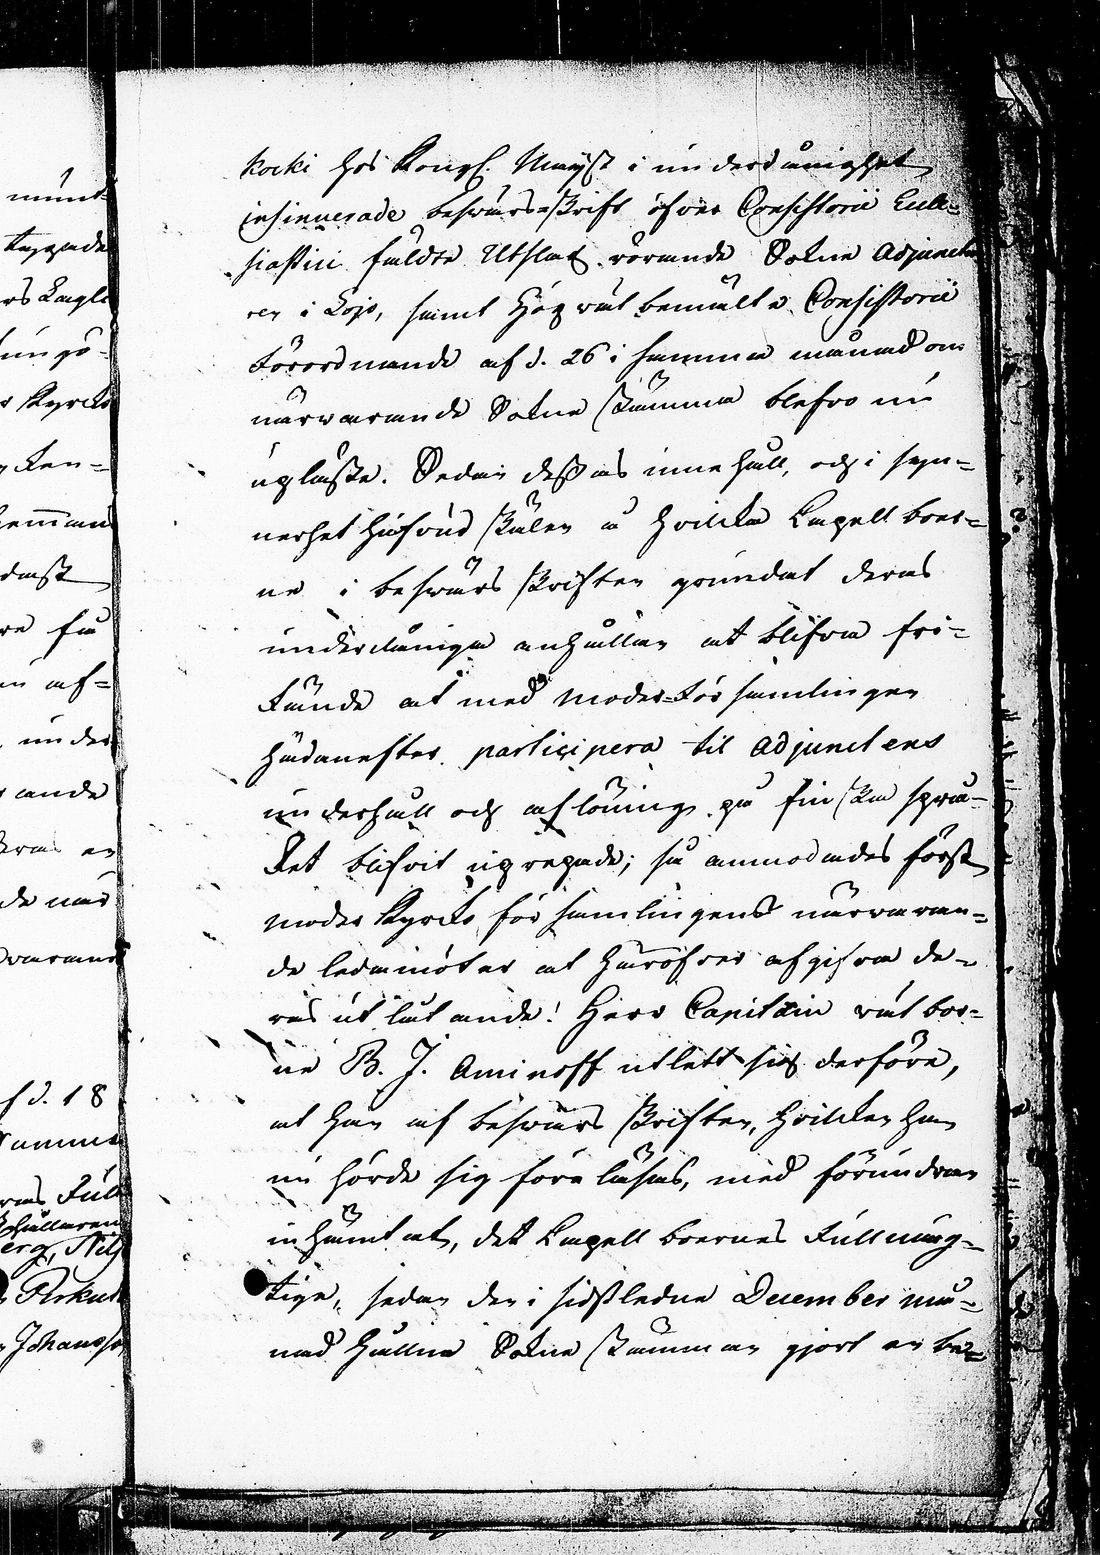 kocki hos Kongl. Maijst i underdånighet
insinuerade beswärs-skrift öfver Consistorii Eccle-
siastici fäldte Utslag rörande Sokne Adjunctu-
ren i Lojo, samt Högvälbemälte Consistorii
Förordnande af d. 26 i samma månad om
närwarande Sokne Stämma blefvo nu
upläste. Sedan dessas innehåll, och i syn-
nerhet hufvud skälen å hvilka Capell boer-
ne i beswärs skriften grundat deras
underdåniga anhållan at blifva fri-
kände at med moder-Församlingen
hädanefter participera til Adjunctens
underhåll och aflöning på finska språ-
ket blifvit uprepade; så anmodades först
moder Kyrko församlingens närvaran-
de ledamöter at häröfver afgifva de-
ras utlåtande! Herr Capitain wälbor-
ne B. J. Aminoff utlett sig derföre,
at han af beswärs skriften, hvilken han
nu hörde sig före läsas, med förundran
inhämtat, det Capell boernes Fullmäg-
tige, sedan den i sidstledne December må-
nad hållne Sokne Stämman gjort en be-
munt-
Capel
Kyrko
under
af d. 18
Johansson